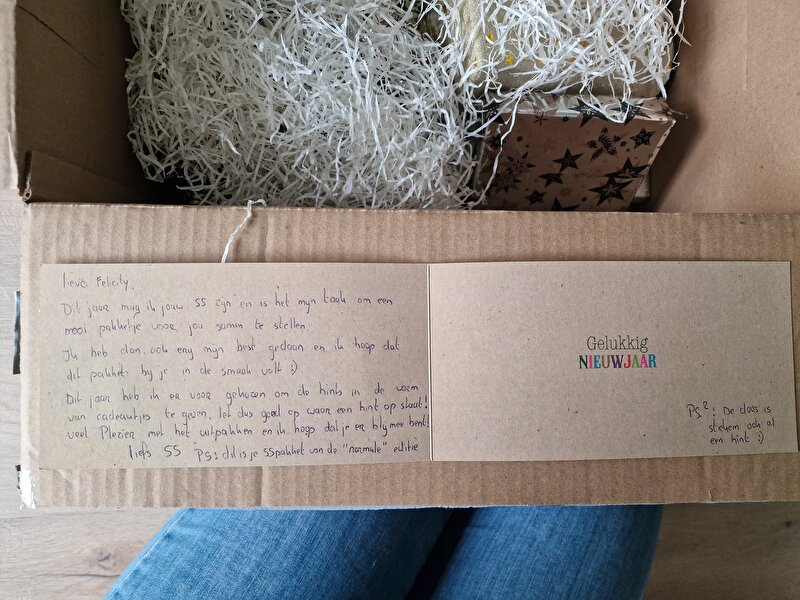 lieve Felicity,
Dit jaar mag ik jouw SS zijn en is het mijn taak om een
mooi pakketje voor jou samen te stellen.
Ik heb dan ook erg mijn best gedaan en ik hoop dat
dit pakket bij je in de smaak valt :)
Dit jaar heb ik er voor gekozen om de hints in de vorm
van cadeautjes te geven, let dus goed op waar een hint op staat!
veel Plezier met het uitpakken en ik hoop dat je er blij mee bent!
liefs SS PS: dit is je SSpakket van de "normale" editie
Gelukkig
NIEUWJAAR
PS²: De doos is
stiekem ook al
een hint :)